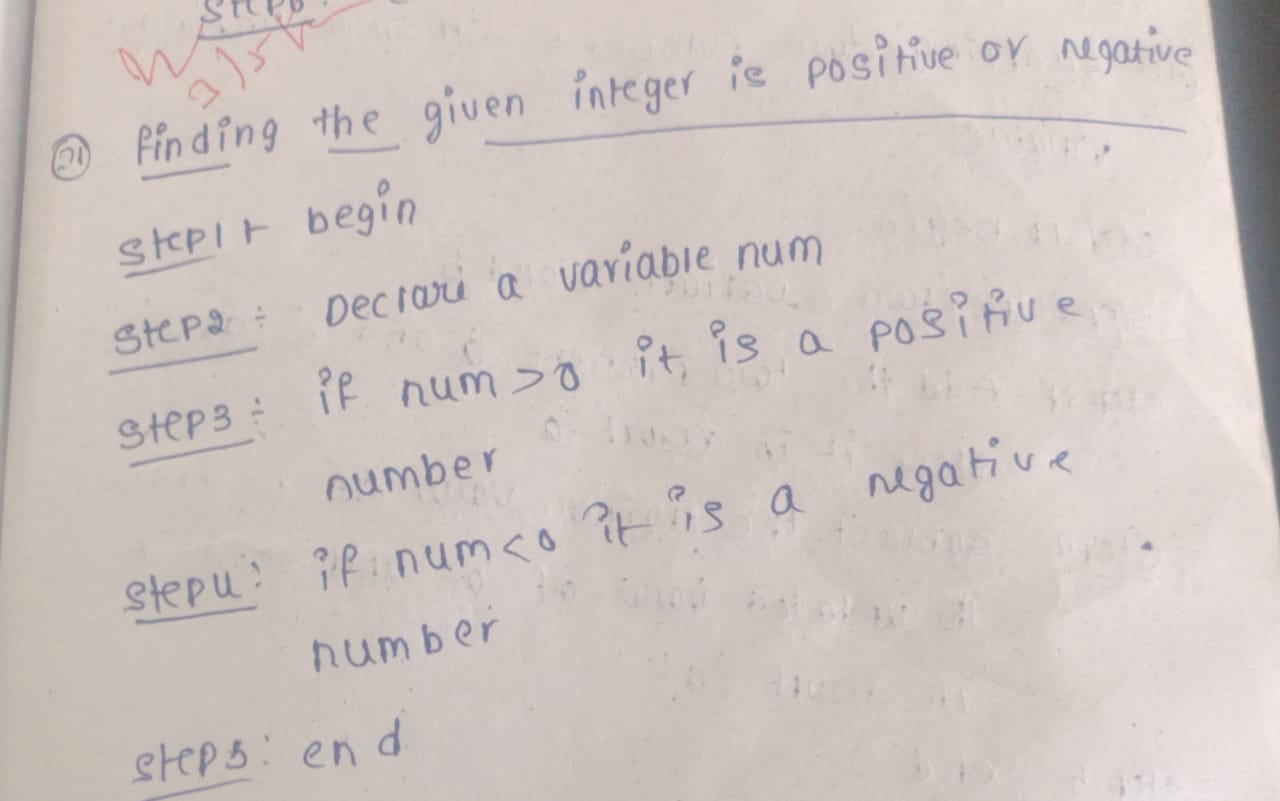 21 finding the given integer is positive or negative
step1: begin
step2: Declare a variable num
step3: if num >0 it is a positive
number
step4: if num<0 it is a negative
number
step5: end